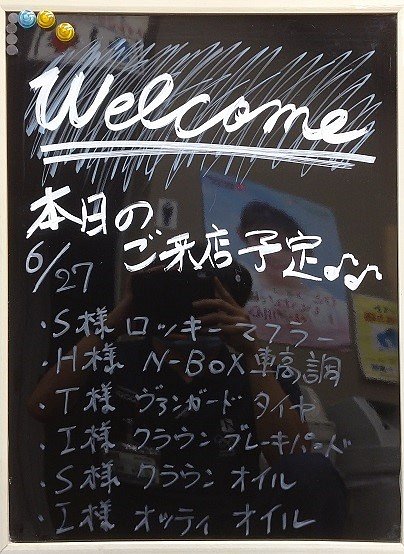 Welcome
本日の
6/27 ご来店予定♪♫
・S様 ロッキーマフラー
・H様 N-BOX 車高調
・T様 ヴァンガード タイヤ
・I様 クラウン ブレーキパッド
・S様 クラウン オイル
・I様 オッティ オイル